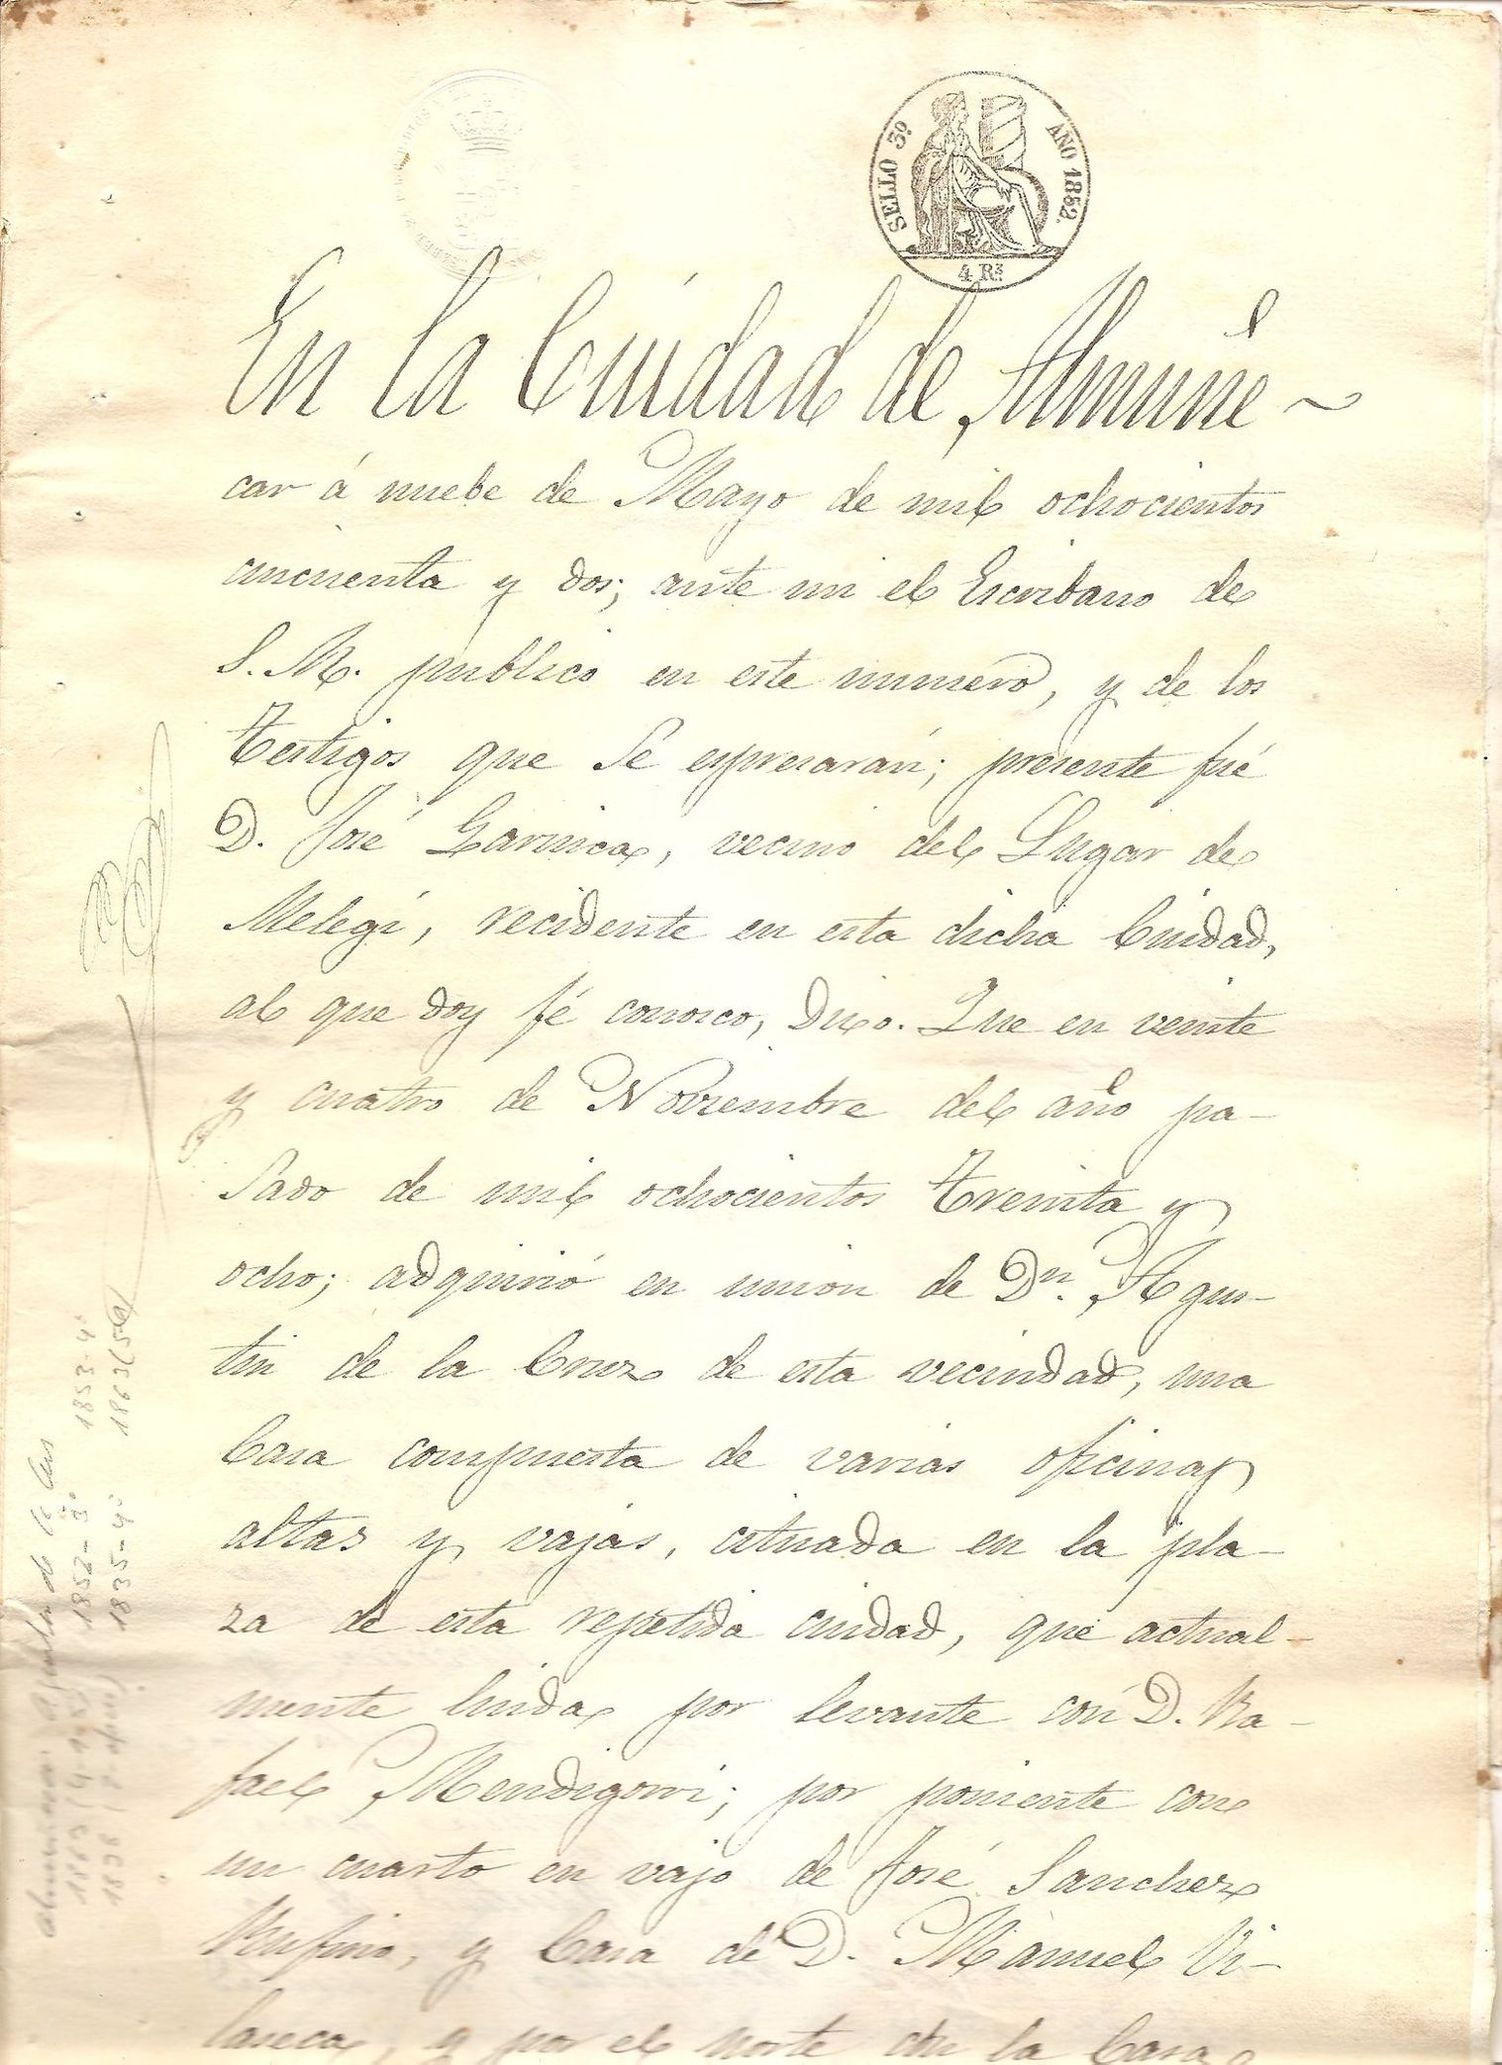 SELLO 3º AÑO 1852.
4 Rs
En la Ciudad de Almuñe ~
car á nuebe de Mayo de mil ochocientos
cincuenta y dos; ante mi el Escribano de
S. M. publico en este numero, y de los
Testigos que se espresarán; presente fué
D. José Garnica, vecino del Lugar de
Melegí, recidente en esta dicha Ciudad,
al que doy fé conosco, Dixo. Que en veinte
y cuatro de Noviembre del año pa-
sado de mil ochocientos treinta y
ocho; adquirió en union de Dn. Agus-
tin de la Cruz de esta vecindad, una
Casa compuesta de varias oficinas
altas y vajas, cituada en la pla-
za de esta repetida ciudad, que actual-
mente linda por levante con D. Ra-
fael Mendigorri; por poniente con
un cuarto en vajo de José Sanchez
Rufino, y Casa de D. Manuel Vi-
laseca, y por el norte con la Casa
1852-3º 1853-4º
1835-4º 1863(5º)